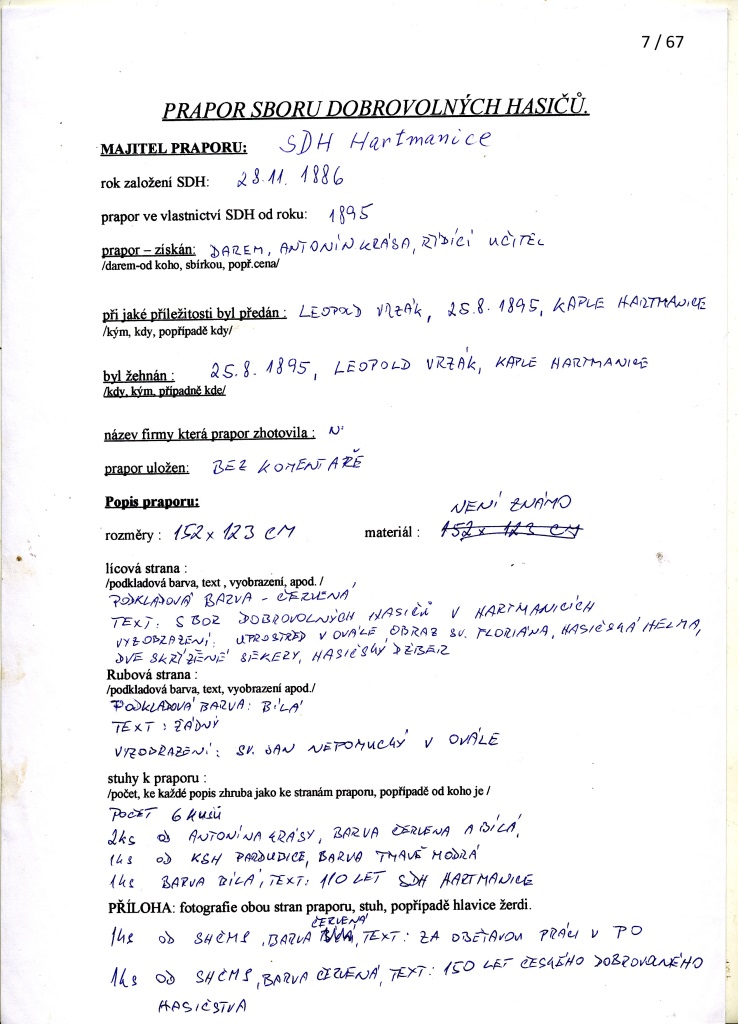 7 / 67
PRAPOR SBORU DOBROVOLNÝCH HASIČŮ.
MAJITEL PRAPORU: SDH Hartmanice
rok založení SDH: 28.11. 1886
prapor ve vlastnictví SDH od roku: 1895
prapor – získán: DAREM, ANTONÍN KRÁSA, ŘÍDÍCÍ UČITEL
/darem-od koho, sbírkou, popř.cena/
při jaké příležitosti byl předán : LEOPOLD VRZÁK, 25.8. 1895, KAPLE HARTMANICE
/kým, kdy, popřípadě kdy/
byl žehnán : 25.8. 1895, LEOPOLD VRZÁK, KAPLE HARTMANICE
/kdy, kým, případně kde/
název firmy která prapor zhotovila : N
prapor uložen: BEZ KOMENTÁŘE
Popis praporu:
NENÍ ZNÁMO
rozměry : 152 x 123 CM materiál : 152 x 123 CM
lícová strana :
/podkladová barva, text , vyobrazení, apod. /
PODKLADOVÁ BARVA - ČERVENÁ
TEXT: SBOR DOBROVOLNÝCH HASIČŮ V HARTMANICÍCH
VYZOBRAZENÍ: UPROSTŘED V OVÁLE OBRAZ SV. FLORIÁNA, HASIČSKÁ HELMA,
DVĚ SKŘÍŽENÉ SEKERY, HASIČSKÝ DŽBER
Rubová strana :
/podkladová barva, text, vyobrazení apod./
PODKLADOVÁ BARVA: BÍLÁ
TEXT : ŽÁDNÝ
VYZOBRAZENÍ: SV. JAN NEPOMUCKÝ V OVÁLE
stuhy k praporu :
/počet, ke každé popis zhruba jako ke stranám praporu, popřípadě od koho je /
POČET 6 KUSŮ
2ks OD ANTONÍNA KRÁSY, BARVA ČERVENÁ A BÍLÁ,
1ks OD KSH PARDUBICE, BARVA TMAVĚ MODRÁ
1ks BARVA BÍLÁ, TEXT: 110 LET SDH HARTMANICE
PŘÍLOHA: fotografie obou stran praporu, stuh, popřípadě hlavice žerdi.
ČERVENÁ
1ks OD SHČMS, BARVA BÍLÁ, TEXT: ZA OBĚTAVOU PRÁCI V PO
1ks OD SHČMS, BARVA ČERVENÁ, TEXT: 150 LET ČESKÉHO DOBROVOLNÉHO
HASIČSTVA